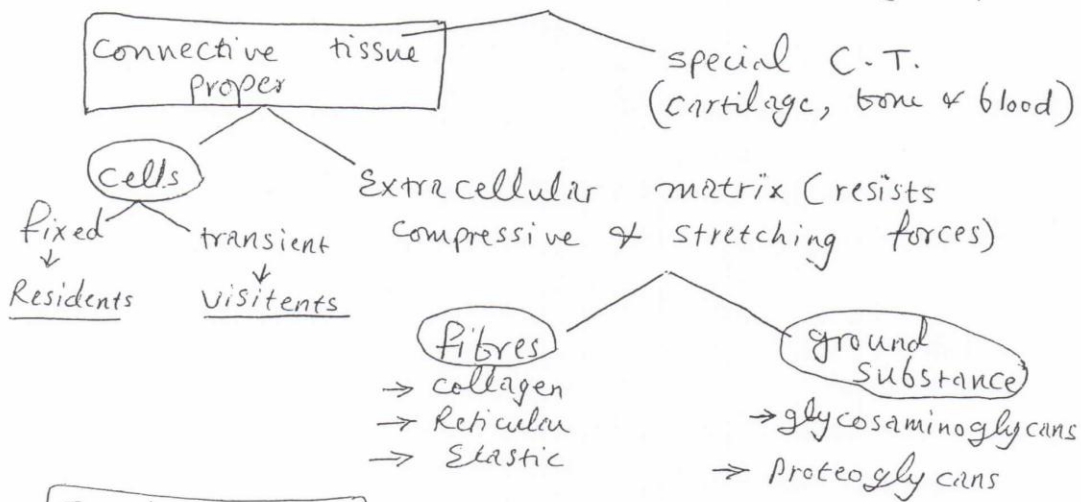 Connective tissue
proper
special C.T.
(cartilage, bone & blood)
cells
fixed
transient
Residents
visitents
Extracellular matrix (resists
compressive & stretching forces)
fibres
→ collagen
→ Reticular
→ Elastic
ground
substance
→ glycosaminoglycans
→ Proteoglycans